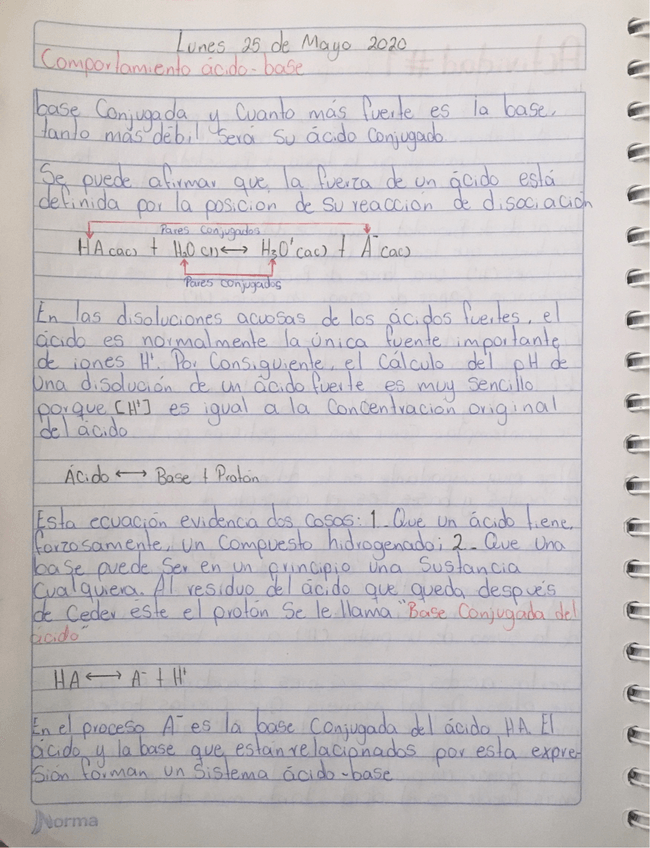 Lunes 25 de Mayo 2020
Comportamiento ácido-base
base Conjugada y Cuanto más fuerte es la base,
tanto más débil será su ácido Conjugado
Se puede afirmar que, la fuerza de un ácido está
definida por la posicion de su reaccion de disociación
Pares Conjugados
HA(ac) + H₂O(l) ⟷ H₃O⁺(ac) + A⁻(ac)
Pares Conjugados
En las disoluciones acuosas de los ácidos fuertes, el
ácido es normalmente la única fuente importante
de iones H⁺. Por Consiguiente, el Cálculo del pH de
Una disolución de un ácido fuerte es muy sencillo
porque [H⁺] es igual a la Concentracion original
del ácido
Ácido ⟷ Base + Protón
Esta ecuación evidencia dos Cosas: 1. Que un ácido tiene,
forzosamente, un Compuesto hidrogenado; 2. Que Una
base puede Ser en un principio Una Sustancia
Cualquiera. Al residuo del ácido que queda después
de Ceder éste el protón Se le llama "Base Conjugada del
ácido"
HA ⟷ A⁻ + H⁺
En el proceso A⁻ es la base Conjugada del ácido HA. El
ácido y la base que están relacionados por esta expre-
sión forman un Sistema ácido-base
Norma